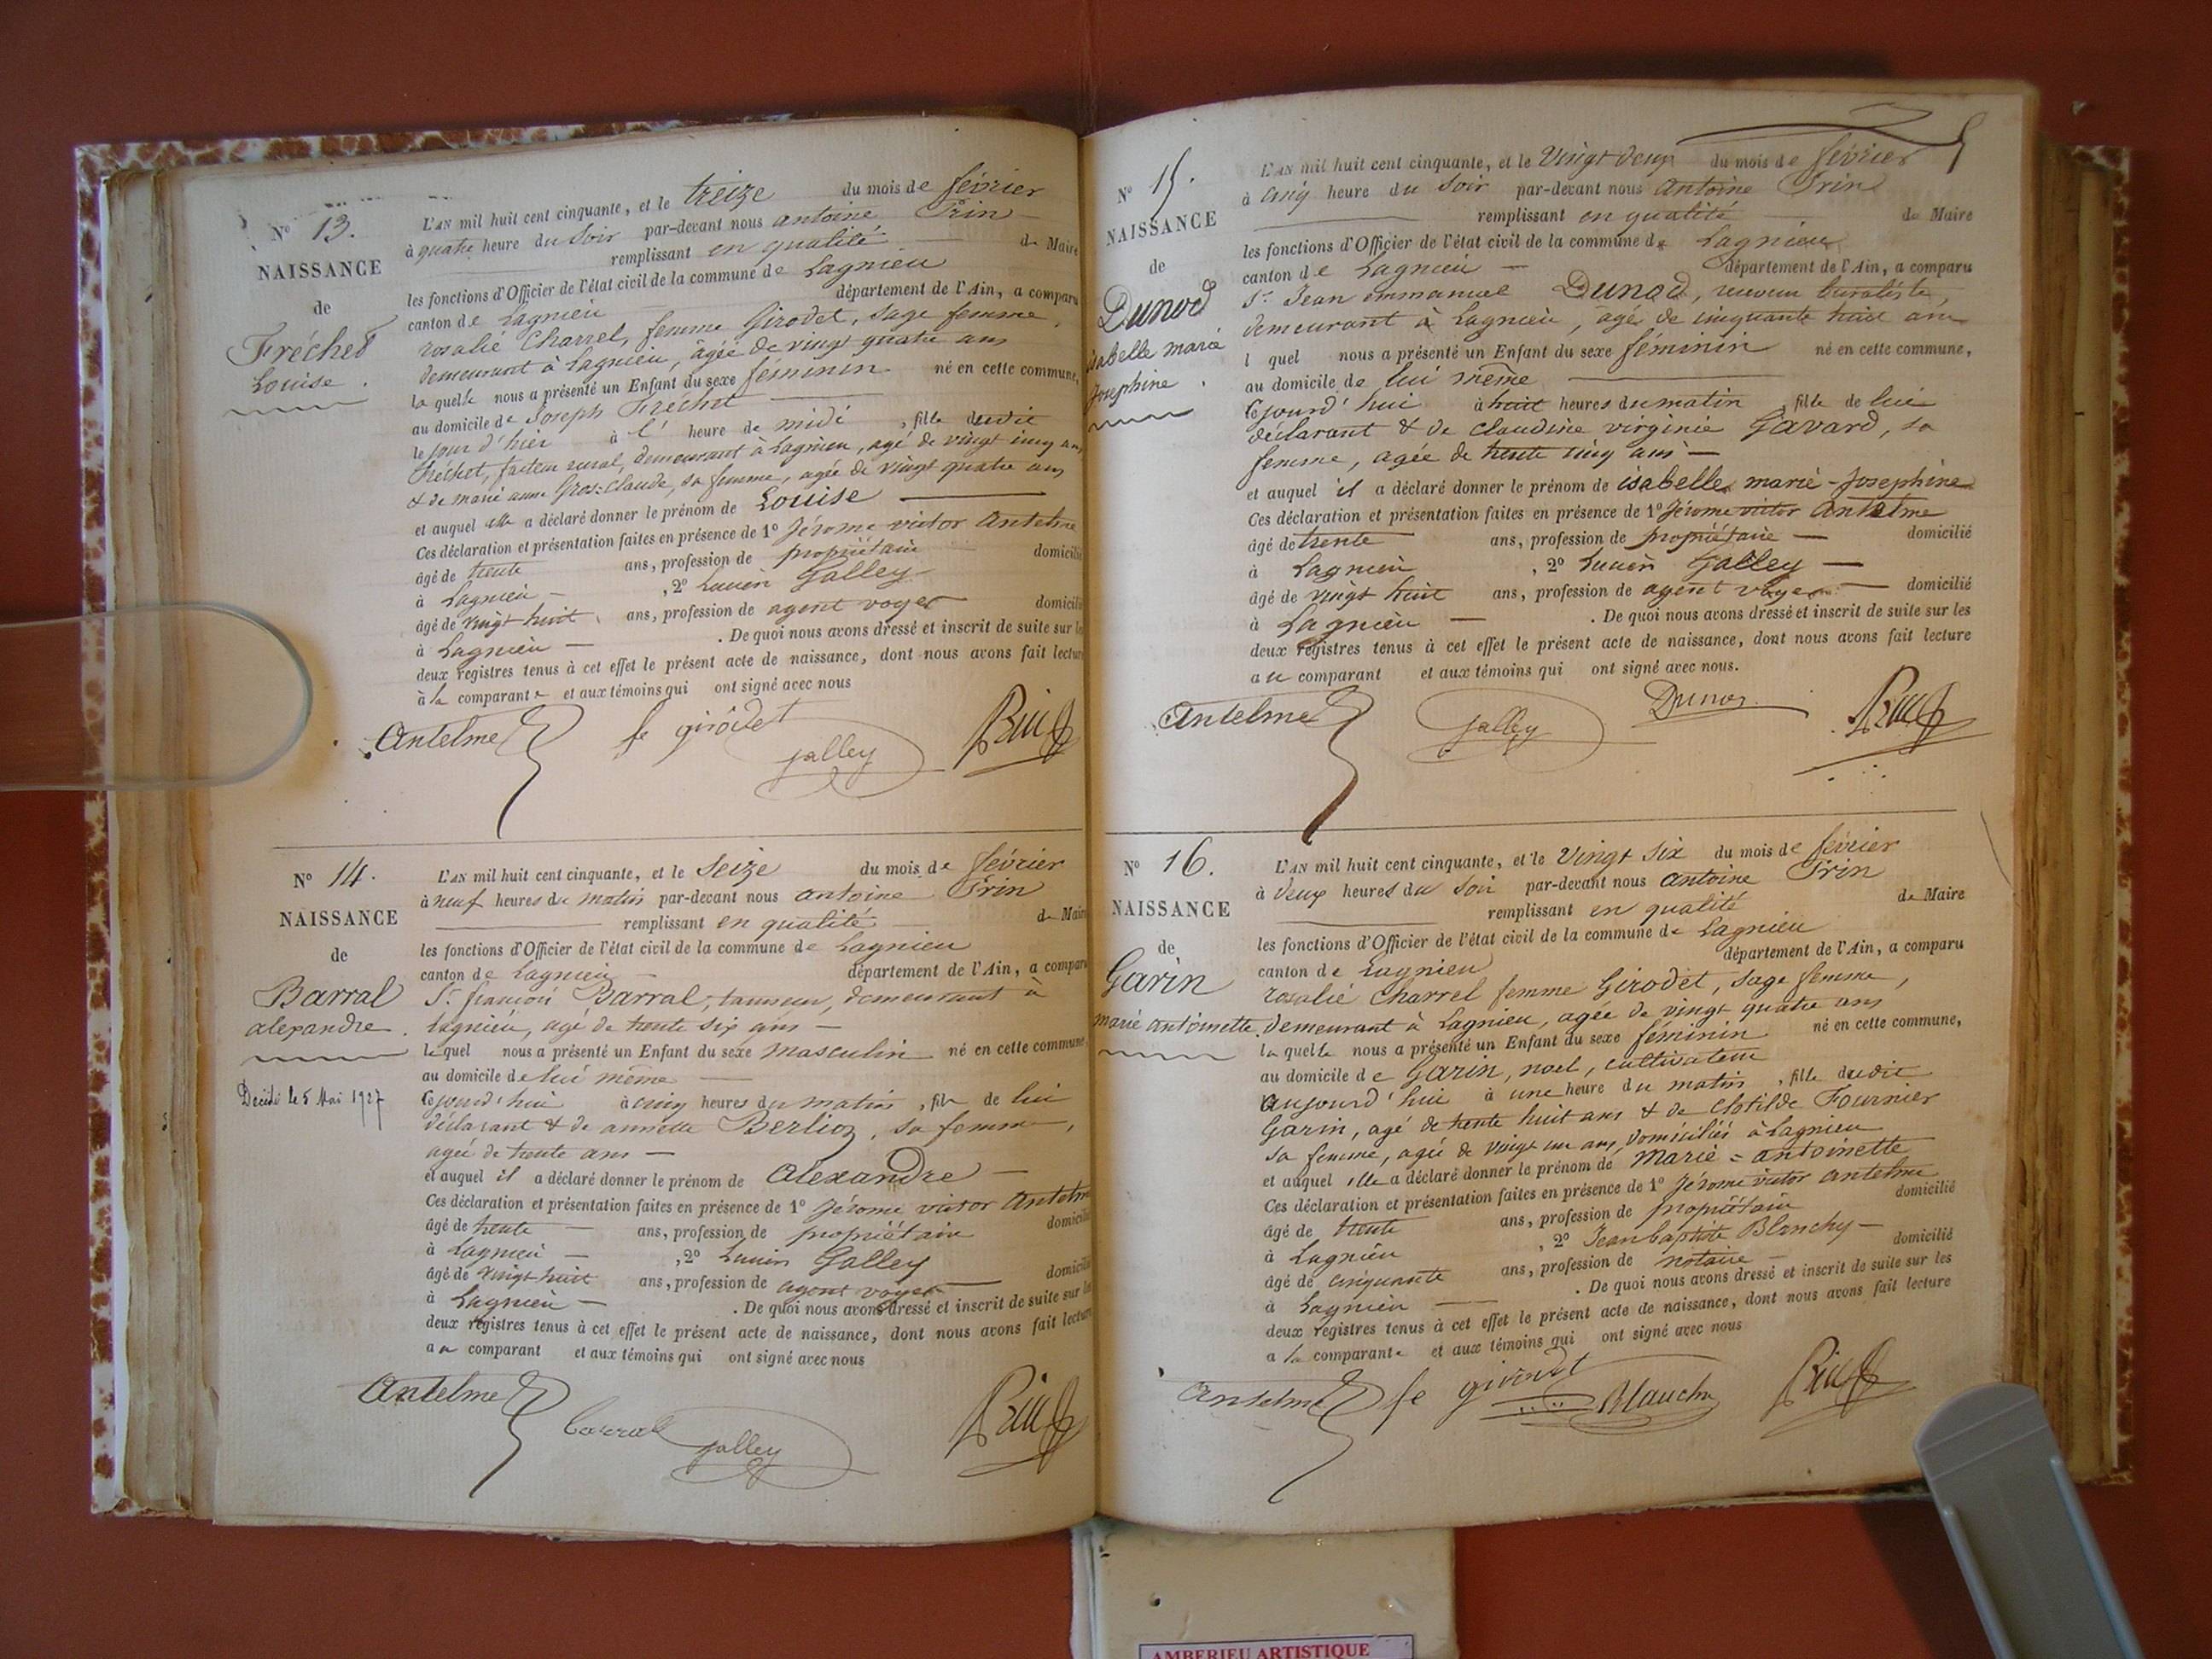 N° 13.
NAISSANCE
de
Fréchet
Louise.
L'AN mil huit cent cinquante, et le treize du mois de février
à quatre heure du soir par-devant nous antoine Prin
remplissant en qualité de Maire
les fonctions d'Officier de l'état civil de la commune de Lagnieu
canton de Lagnieu département de l'Ain, a comparu
rosalie Charrel, femme Girodet, sage femme,
demeurant à Lagnieu, âgée de vingt quatre ans
la quelle nous a présenté un Enfant du sexe féminin né en cette commune,
au domicile de Joseph Fréchet
le jour d'hier à l' heure de midi, fille dudit
Fréchet, facteur rural, demeurant à Lagnieu, agé de vingt cinq ans
& de marie anne Gros-Claude, sa femme, agée de vingt quatre ans
et auquel elle a déclaré donner le prénom de Louise
Ces déclaration et présentation faites en présence de 1° Jérome victor Antelme
âgé de trente ans, profession de propriétaire domicilié
à Lagnieu, 2° Lucien Galley
âgé de vingt huit ans, profession de agent voyer domicilié
à Lagnieu. De quoi nous avons dressé et inscrit de suite sur les
deux registres tenus à cet effet le présent acte de naissance, dont nous avons fait lecture
à la comparante et aux témoins qui ont signé avec nous
Antelme fe girodet galley Prin
N° 14.
NAISSANCE
de
Barral
alexandre.
Décédé le 5 Mai 1927
L'AN mil huit cent cinquante, et le seize du mois de février
à neuf heures du matin par-devant nous antoine Prin
remplissant en qualité de Maire
les fonctions d'Officier de l'état civil de la commune de Lagnieu
canton de Lagnieu département de l'Ain, a comparu
Sr. françois Barral, tanneur, demeurant à
Lagnieu, agé de trente six ans
lequel nous a présenté un Enfant du sexe masculin né en cette commune,
au domicile de lui même
cejourd'hui à cinq heures du matin, fils de lui
déclarant & de annette Berlioz, sa femme,
agée de trente ans
et auquel il a déclaré donner le prénom de Alexandre
Ces déclaration et présentation faites en présence de 1° Jérome victor Antelme
âgé de trente ans, profession de propriétaire domicilié
à Lagnieu, 2° Lucien Galley
âgé de vingt huit ans, profession de agent voyer domicilié
à Lagnieu. De quoi nous avons dressé et inscrit de suite sur les
deux registres tenus à cet effet le présent acte de naissance, dont nous avons fait lecture
au comparant et aux témoins qui ont signé avec nous
Antelme barral galley Prin
5
N° 15.
NAISSANCE
de
Dunod
isabelle marie
Josephine.
L'AN mil huit cent cinquante, et le Vingt deux du mois de février
à cinq heure du soir par-devant nous Antoine Prin
remplissant en qualité de Maire
les fonctions d'Officier de l'état civil de la commune de Lagnieu
canton de Lagnieu département de l'Ain, a comparu
Sr. Jean emmanuel Dunod, receveur buraliste,
demeurant à Lagnieu, agé de cinquante huit ans
l quel nous a présenté un Enfant du sexe féminin né en cette commune,
au domicile de lui même
cejourd'hui à huit heures du matin, fille de lui
déclarant & de claudine virginie Gavard, sa
femme, agée de trente cinq ans
et auquel il a déclaré donner le prénom de isabelle marie-Josephine
Ces déclaration et présentation faites en présence de 1° Jérome victor Antelme
âgé de trente ans, profession de propriétaire domicilié
à Lagnieu, 2° Lucien Galley
âgé de vingt huit ans, profession de agent voyer domicilié
à Lagnieu. De quoi nous avons dressé et inscrit de suite sur les
deux registres tenus à cet effet le présent acte de naissance, dont nous avons fait lecture
au comparant et aux témoins qui ont signé avec nous.
Antelme galley Dunod Prin
N° 16.
NAISSANCE
de
Garin
marie antoinette
L'AN mil huit cent cinquante, et le Vingt six du mois de février
à deux heures du soir par-devant nous antoine Prin
remplissant en qualité de Maire
les fonctions d'Officier de l'état civil de la commune de Lagnieu
canton de Lagnieu département de l'Ain, a comparu
rosalie Charrel femme Girodet, sage femme,
demeurant à Lagnieu, agée de vingt quatre ans
la quelle nous a présenté un Enfant du sexe féminin né en cette commune,
au domicile de Garin, noel, cultivateur
aujourd'hui à une heure du matin, fille dudit
Garin, agé de trente huit ans & de Clotilde Fournier
sa femme, agée de vingt un ans, domiciliés à Lagnieu
et auquel elle a déclaré donner le prénom de Marie=antoinette
Ces déclaration et présentation faites en présence de 1° Jérome victor antelme
âgé de trente ans, profession de propriétaire domicilié
à Lagnieu, 2° Jean baptiste Blanchy
âgé de cinquante ans, profession de notaire domicilié
à Lagnieu. De quoi nous avons dressé et inscrit de suite sur les
deux registres tenus à cet effet le présent acte de naissance, dont nous avons fait lecture
a la comparante et aux témoins qui ont signé avec nous
Antelme fe girodet Blanchy Prin
AMBERIEU ARTISTIQUE